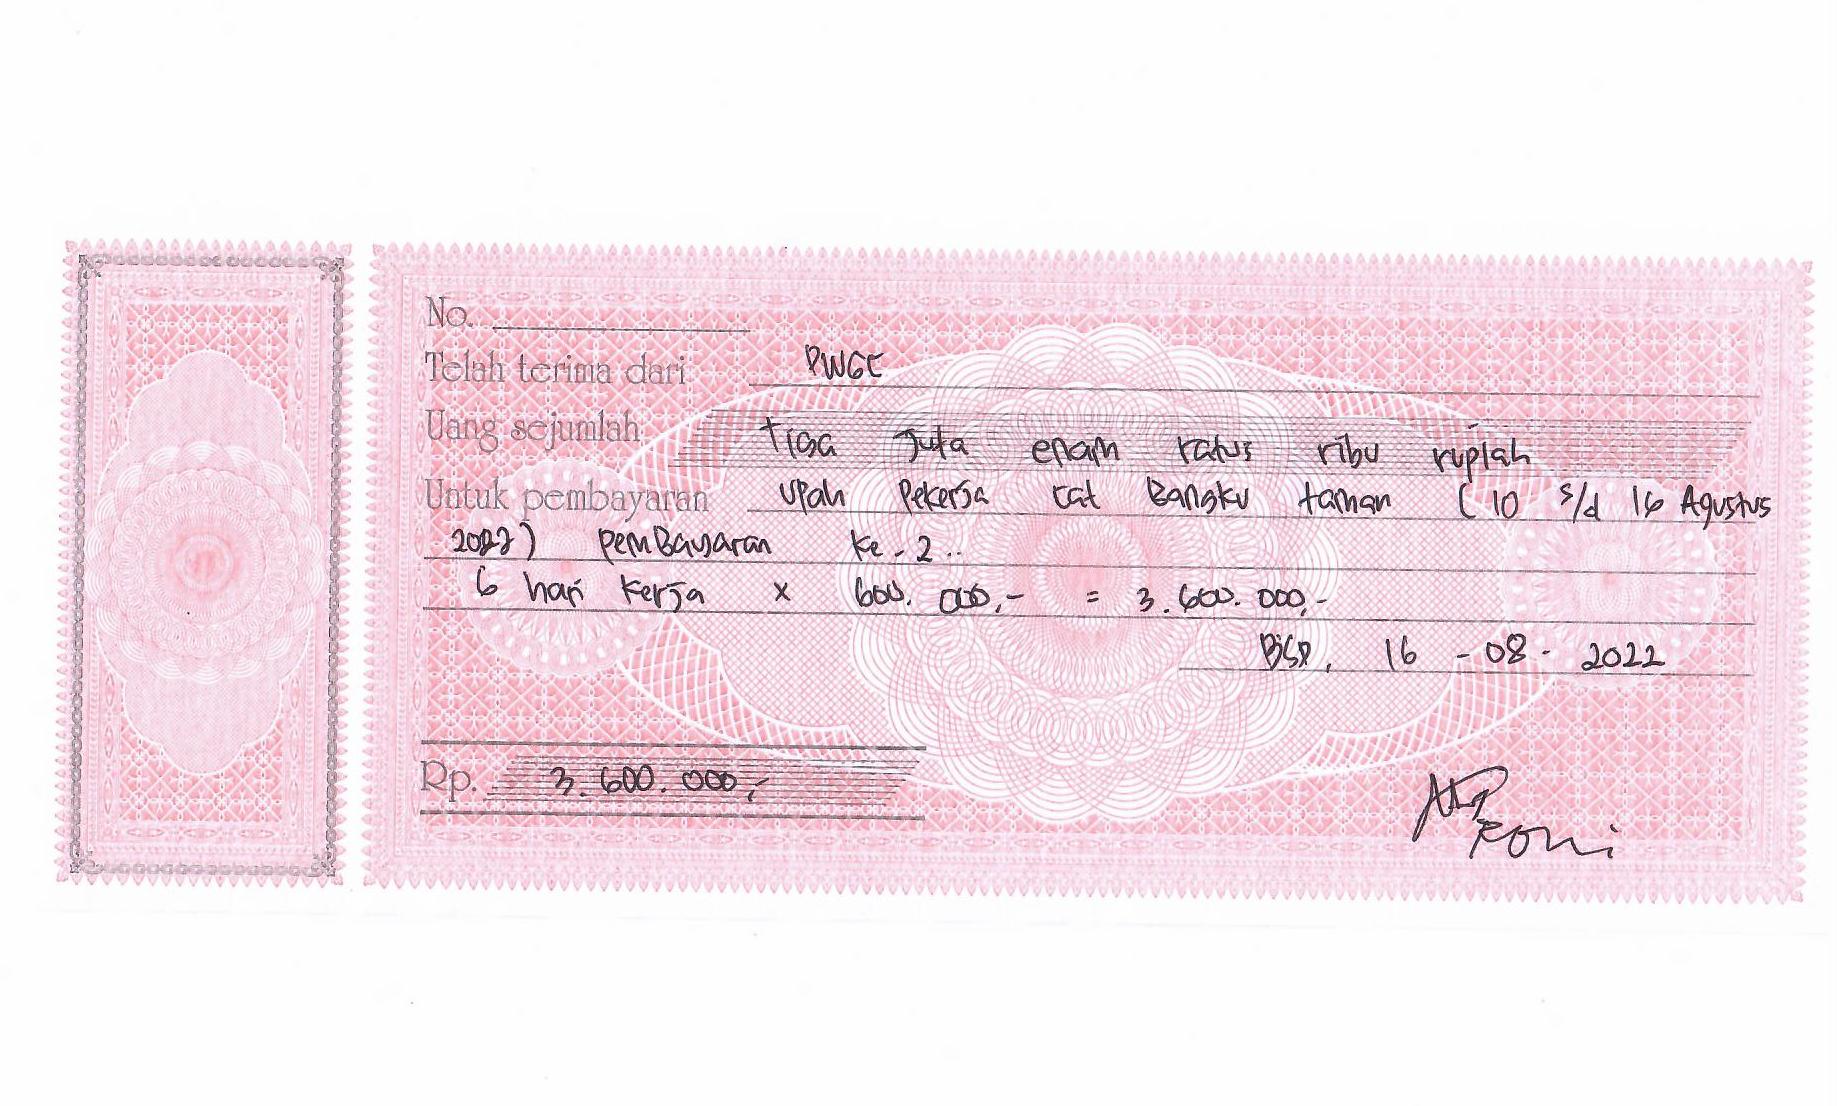 No.
Telah terima dari PWGC
Uang sejumlah Tiga Juta enam ratus ribu rupiah
Untuk pembayaran Upah Pekerja cat Bangku taman ( 10 s/d 16 Agustus
2022) pemBayaran Ke-2..
6 hari Kerja x 600.000,- = 3.600.000,-
16 - 08 - 2022
Rp. 3.600.000,-
Roni